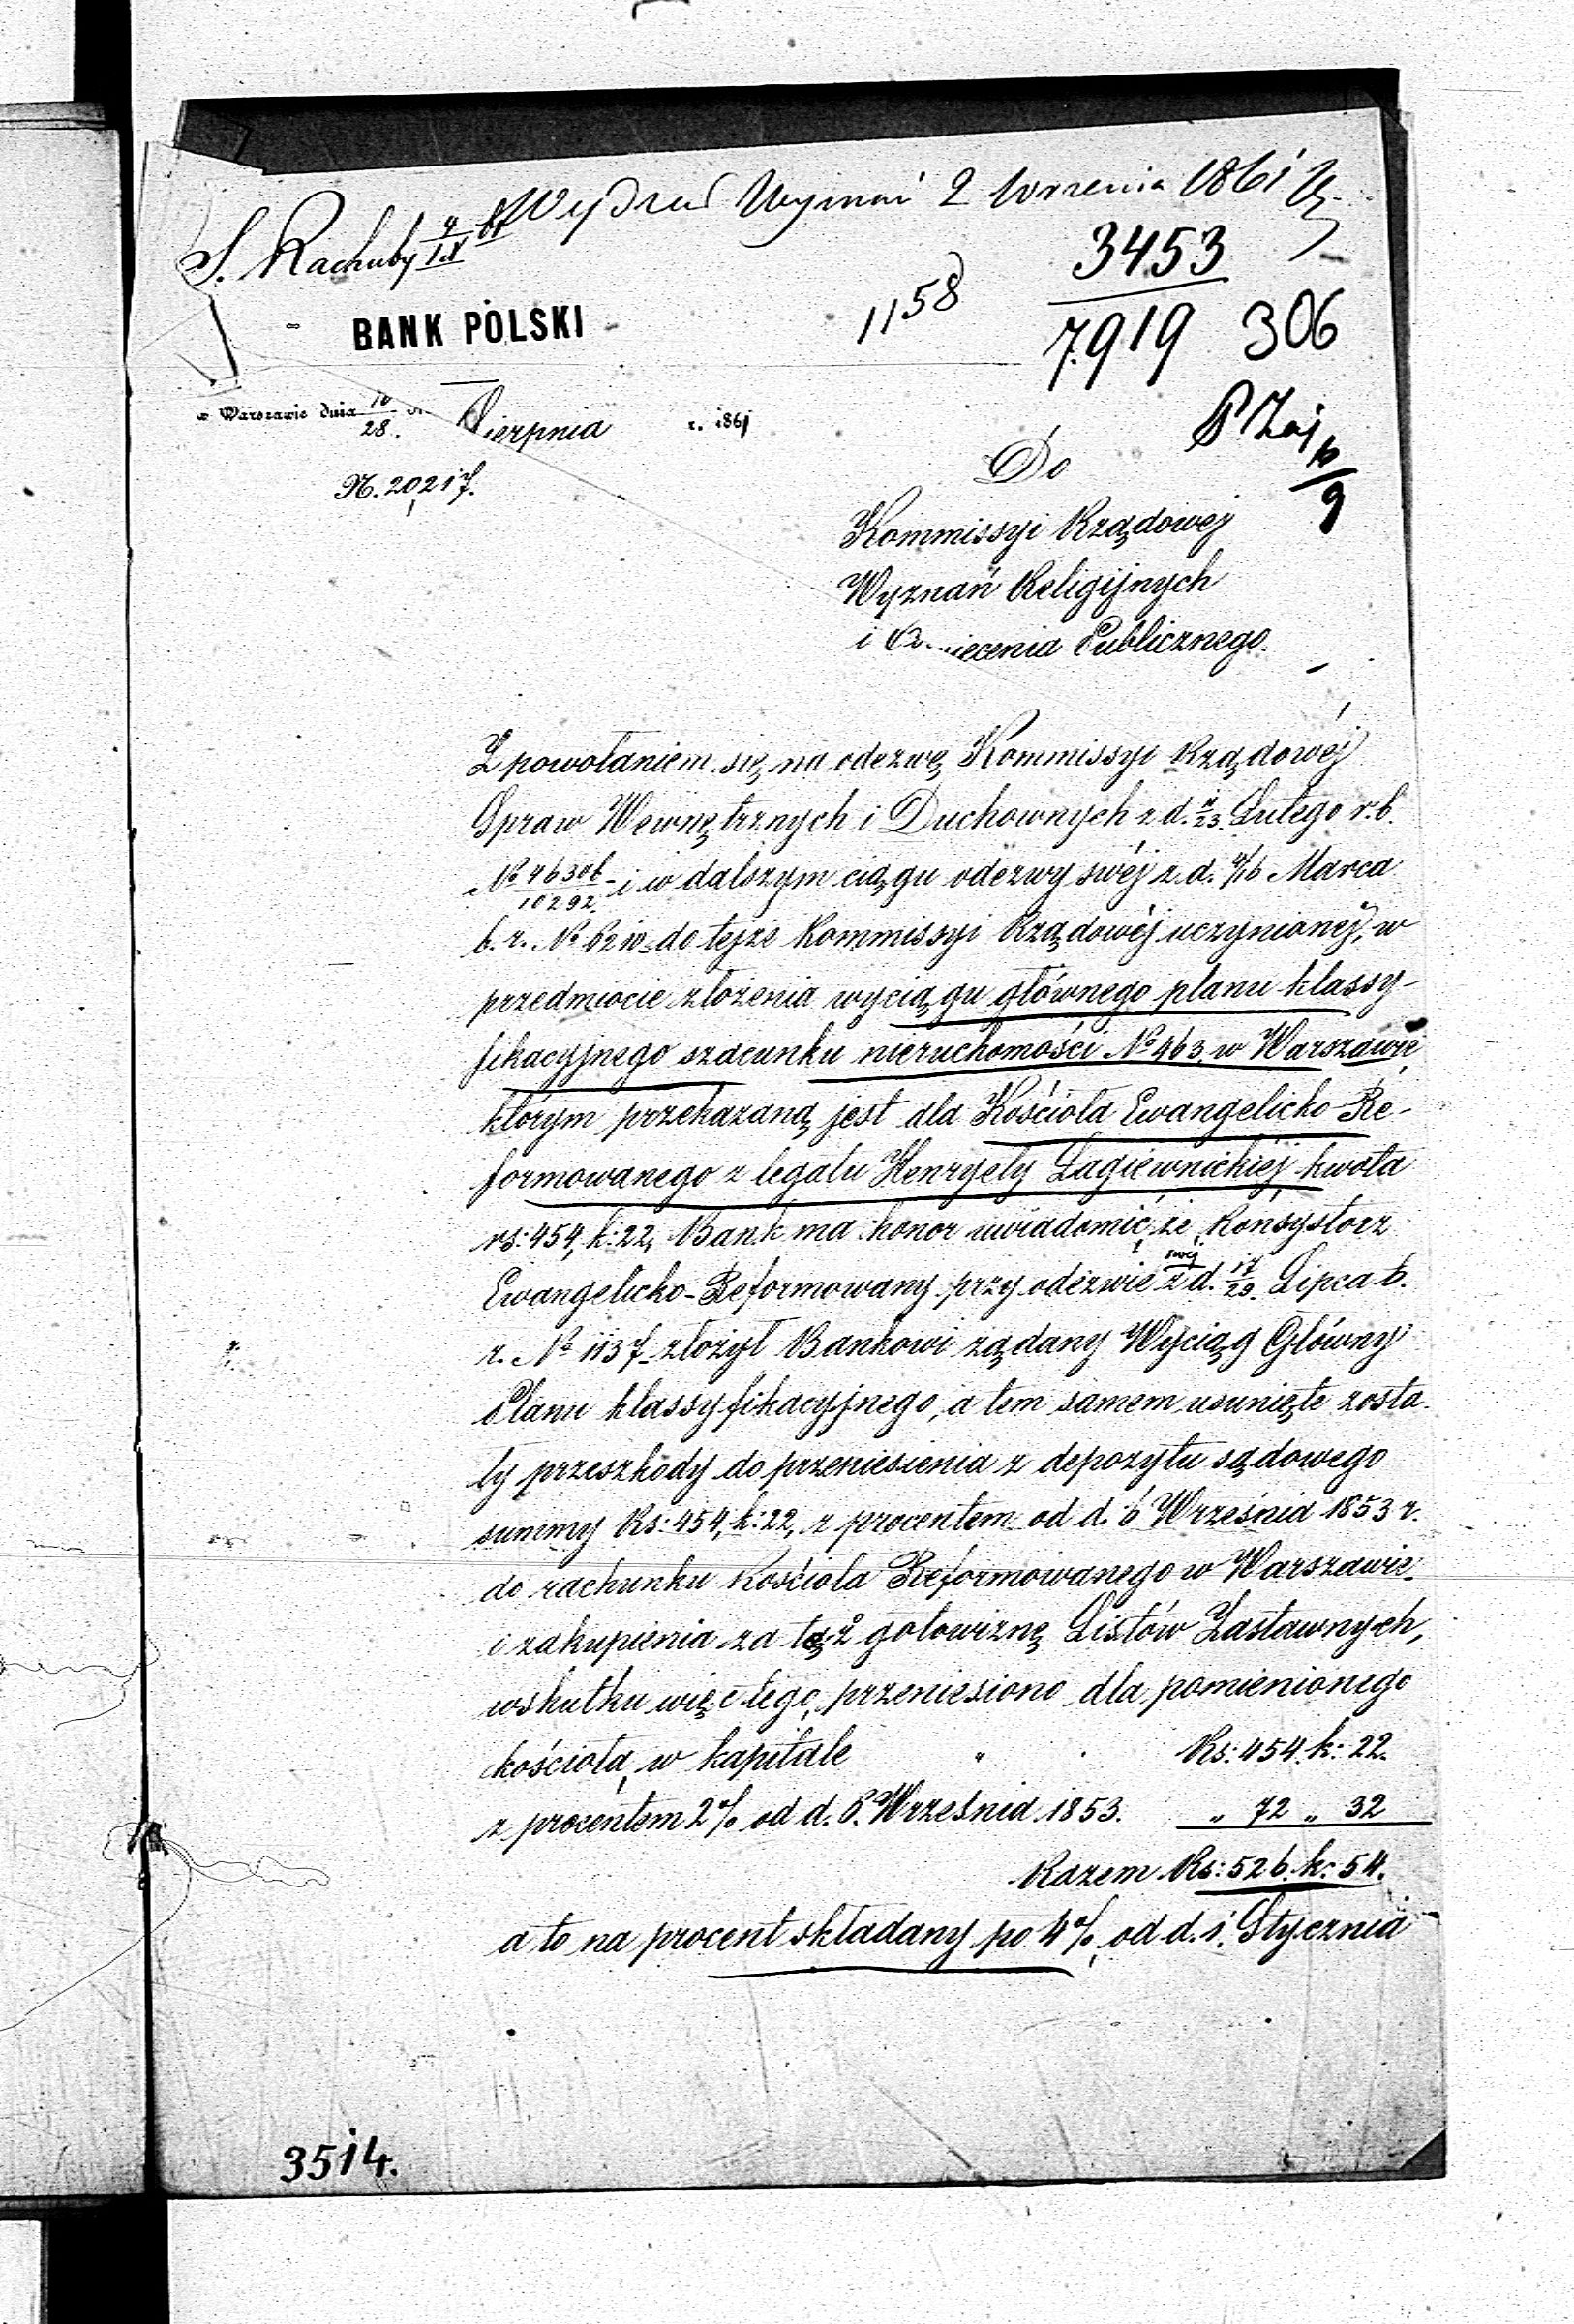 Wydział Wyznań 2 Września 1861
S. Rachuby 4/IX 61
3453
1158
7919 306
BANK POLSKI
w Warszawie dnia 16/28. Sierpnia r. 1861
N. 20217.
9
Do
Kommissyi Rządowej
Wyznań Religijnych
i Oświecenia Publicznego.
Z powołaniem się na odezwę Kommissyi Rządowéj
Spraw Wewnętrznych i Duchownych z d. 11/23. Lutego r. b.
i w dalszym ciągu odezwy swéj z d. 4/16 Marca
b. r. do tejże Kommissyi Rządowéj uczynionéj, w
przedmiocie złożenia wyciągu głównego planu klassy-
fikacyjnego szacunku nieruchomości No 463, w Warszawie
którym przekazaną jest dla Kościoła Ewangelicko-Re-
formowanego z legatu Henryety Łagiewnickiéj kwota
rs: 454, k: 22, Bank ma honor uwiadomić, że Konsystorz
Ewangelicko-Reformowany przy odezwie swéj z d. 17/29. Lipca b.
r. No 1137 złożył Bankowi żądany Wyciąg Główny
Planu klassyfikacyjnego, a tem samem usunięte zosta-
ły przeszkody do przeniesienia z depozytu sądowego
summy Rs: 454, k: 22, z procentem od d. 6 Września 1853 r.
do rachunku Kościoła Reformowanego w Warszawie
i zakupienia za tęż gotowiznę Listów Zastawnych,
wskutku więc tego, przeniesiono dla pomienionego
kościoła, w kapitale " Rs: 454. k: 22.
z procentem 2% od d. 6. Września 1853. " 72 " 32
Razem Rs: 526. k: 54.
a to na procent składany po 4%, od d. 1. Stycznia
3514.